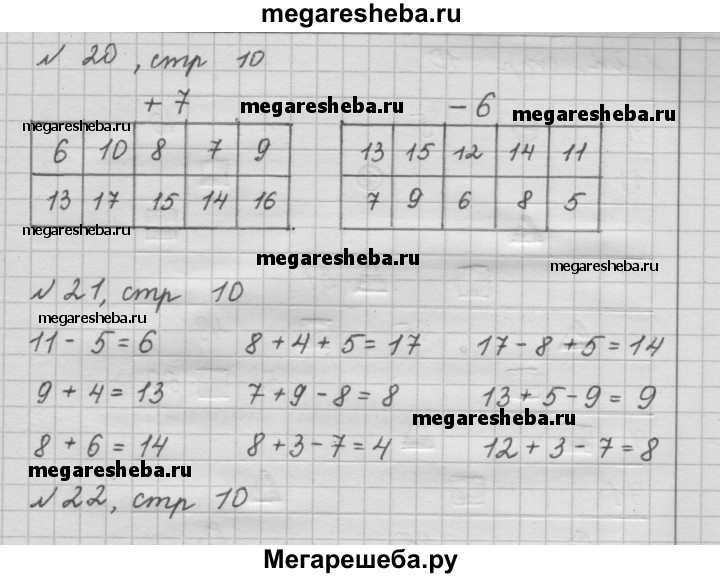 megaresheba.ru
№ 20, стр 10
+ 7 megaresheba.ru - 6 megaresheba.ru
megaresheba.ru
6 10 8 7 9 13 15 12 14 11
13 17 15 14 16 7 9 6 8 5
megaresheba.ru
megaresheba.ru
megaresheba.ru
№ 21, стр 10
megaresheba.ru
11 - 5 = 6 8 + 4 + 5 = 17 17 - 8 + 5 = 14
9 + 4 = 13 7 + 9 - 8 = 8 13 + 5 - 9 = 9
megaresheba.ru
8 + 6 = 14 8 + 3 - 7 = 4 12 + 3 - 7 = 8
megaresheba.ru
№ 22, стр 10
Мегарешеба.ру